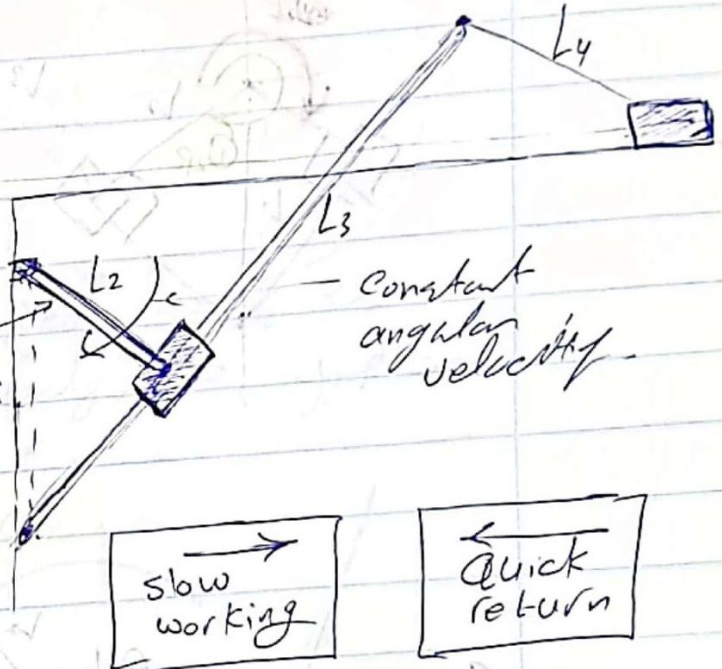 L4
L3
L2
— constant
angular
velocity.
slow
working
Quick
return